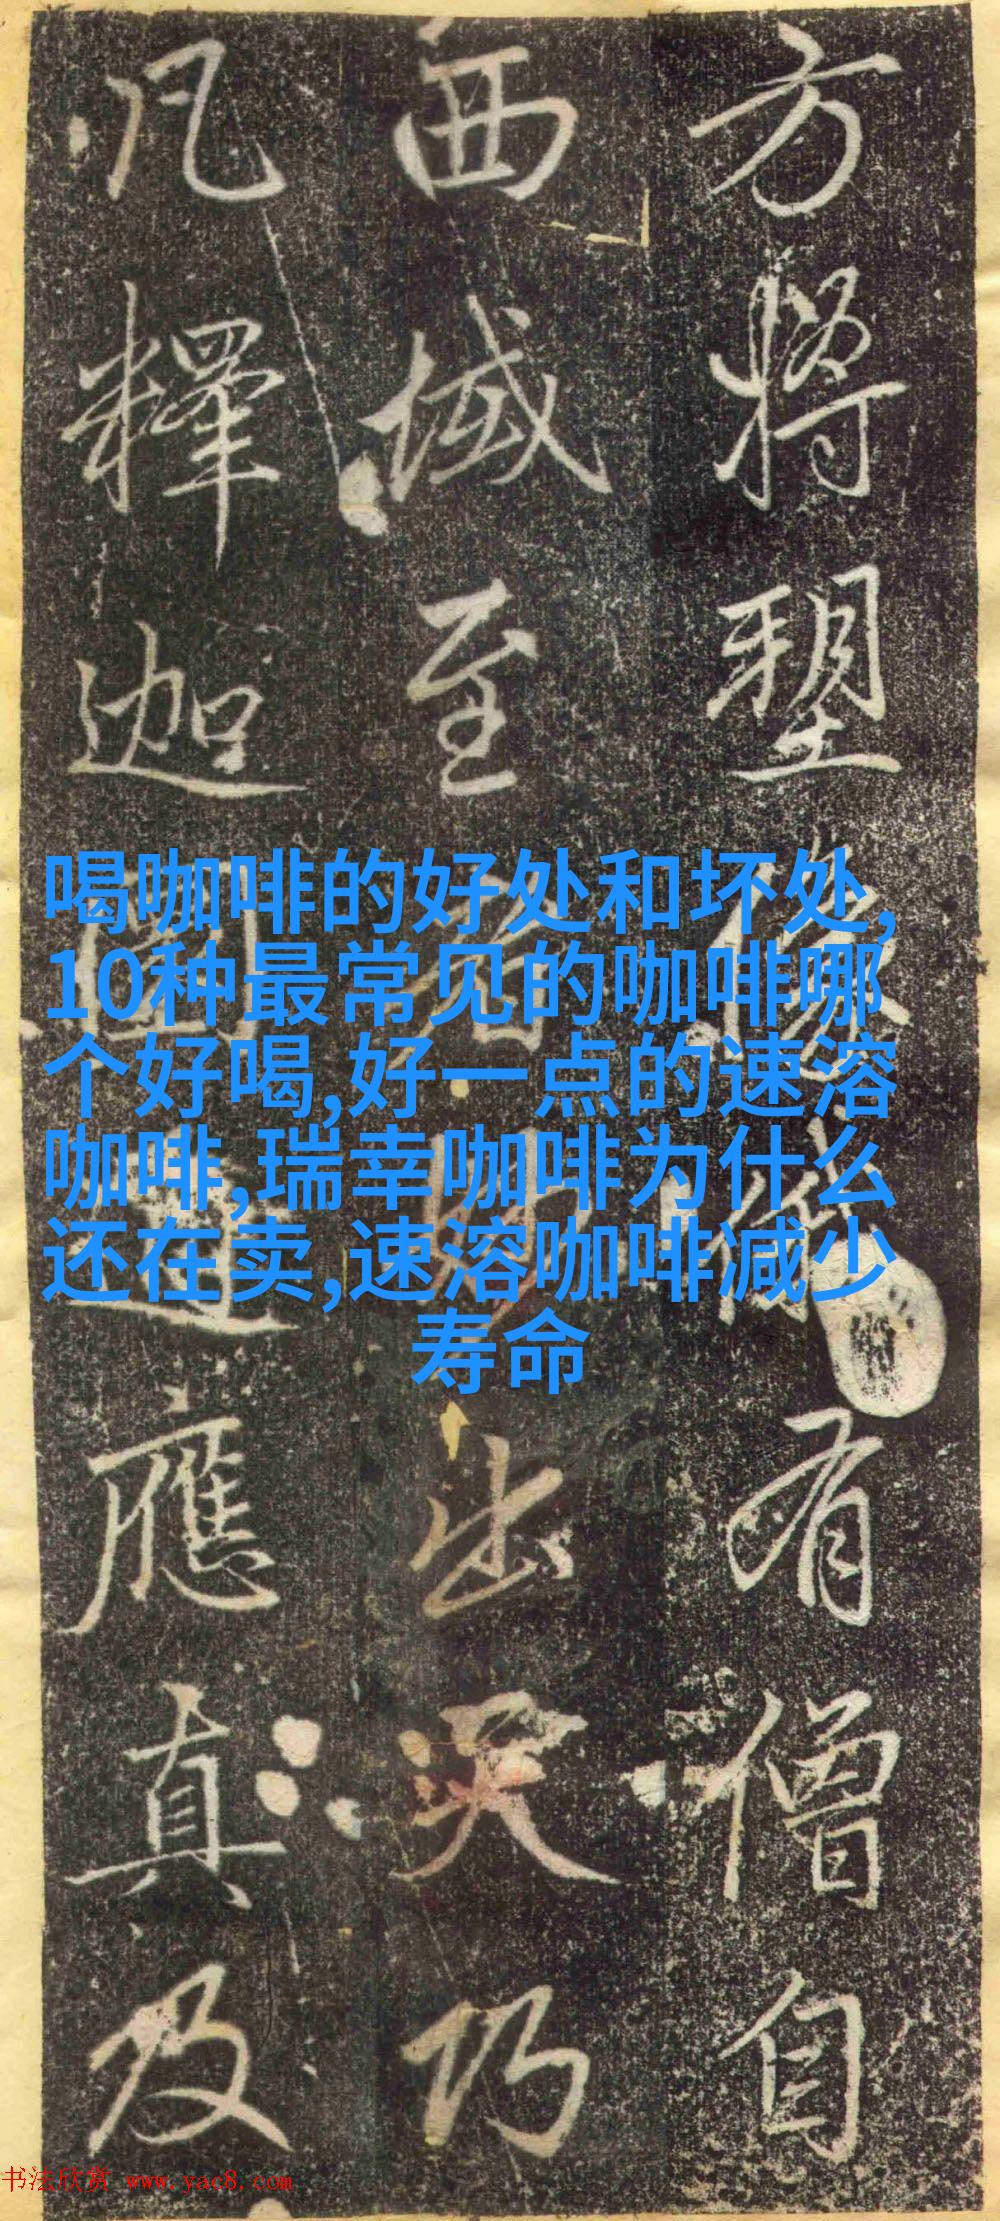 方將塑像有僧自
西域至出天巧
凡釋迦應真及
喝咖啡的好处和坏处,
10种最常见的咖啡哪
个好喝,好一点的速溶
咖啡,瑞幸咖啡为什么
还在卖,速溶咖啡减少
寿命
书法欣赏 www.yac8.com